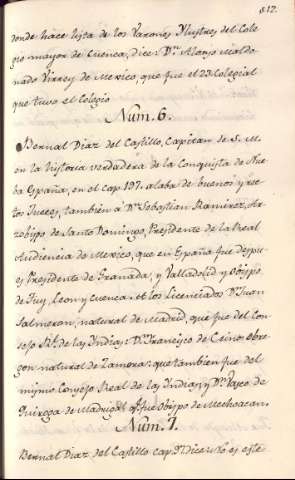 812.
donde hace lista de los Varones Ylustres del Cole
gio mayor de Cuenca, dice: Dn. Alonso Maldo
nado Virrey de Mexico, que fue el 23 Colegial
que tuvo el Colegio
Num. 6.
Bernal Diaz del Castillo, Capitan de S. M.
en la historia verdadera de la Conquista de Nue
ba España, en el cap. 197. alaba de buenos y rec
tos Jueces, tambien á Dn. Sebastian Ramirez, Ar
zobispo de Santo Domingo, Presidente de la Real
Audiencia de Mexico, que en España fue despu
es Presidente de Granada, y Valladolid y Obispo
de Tuy, Leon y Cuenca. á los Licenciados Dn. Juan
Salmeron, natural de Madrid, que fue del Con
sejo Rl. de las Yndias: Dn. Francisco de Ceinos Obre
gon natural de Zamora: que tambien fue del
mismo Consejo Real de las Yndias, y Dn. Vasco de
Quiroga de Madrigal q.e fue Obispo de Mechoacan.
Num. 7.
Bernal Diaz del Castillo cap. dice: Yo es este